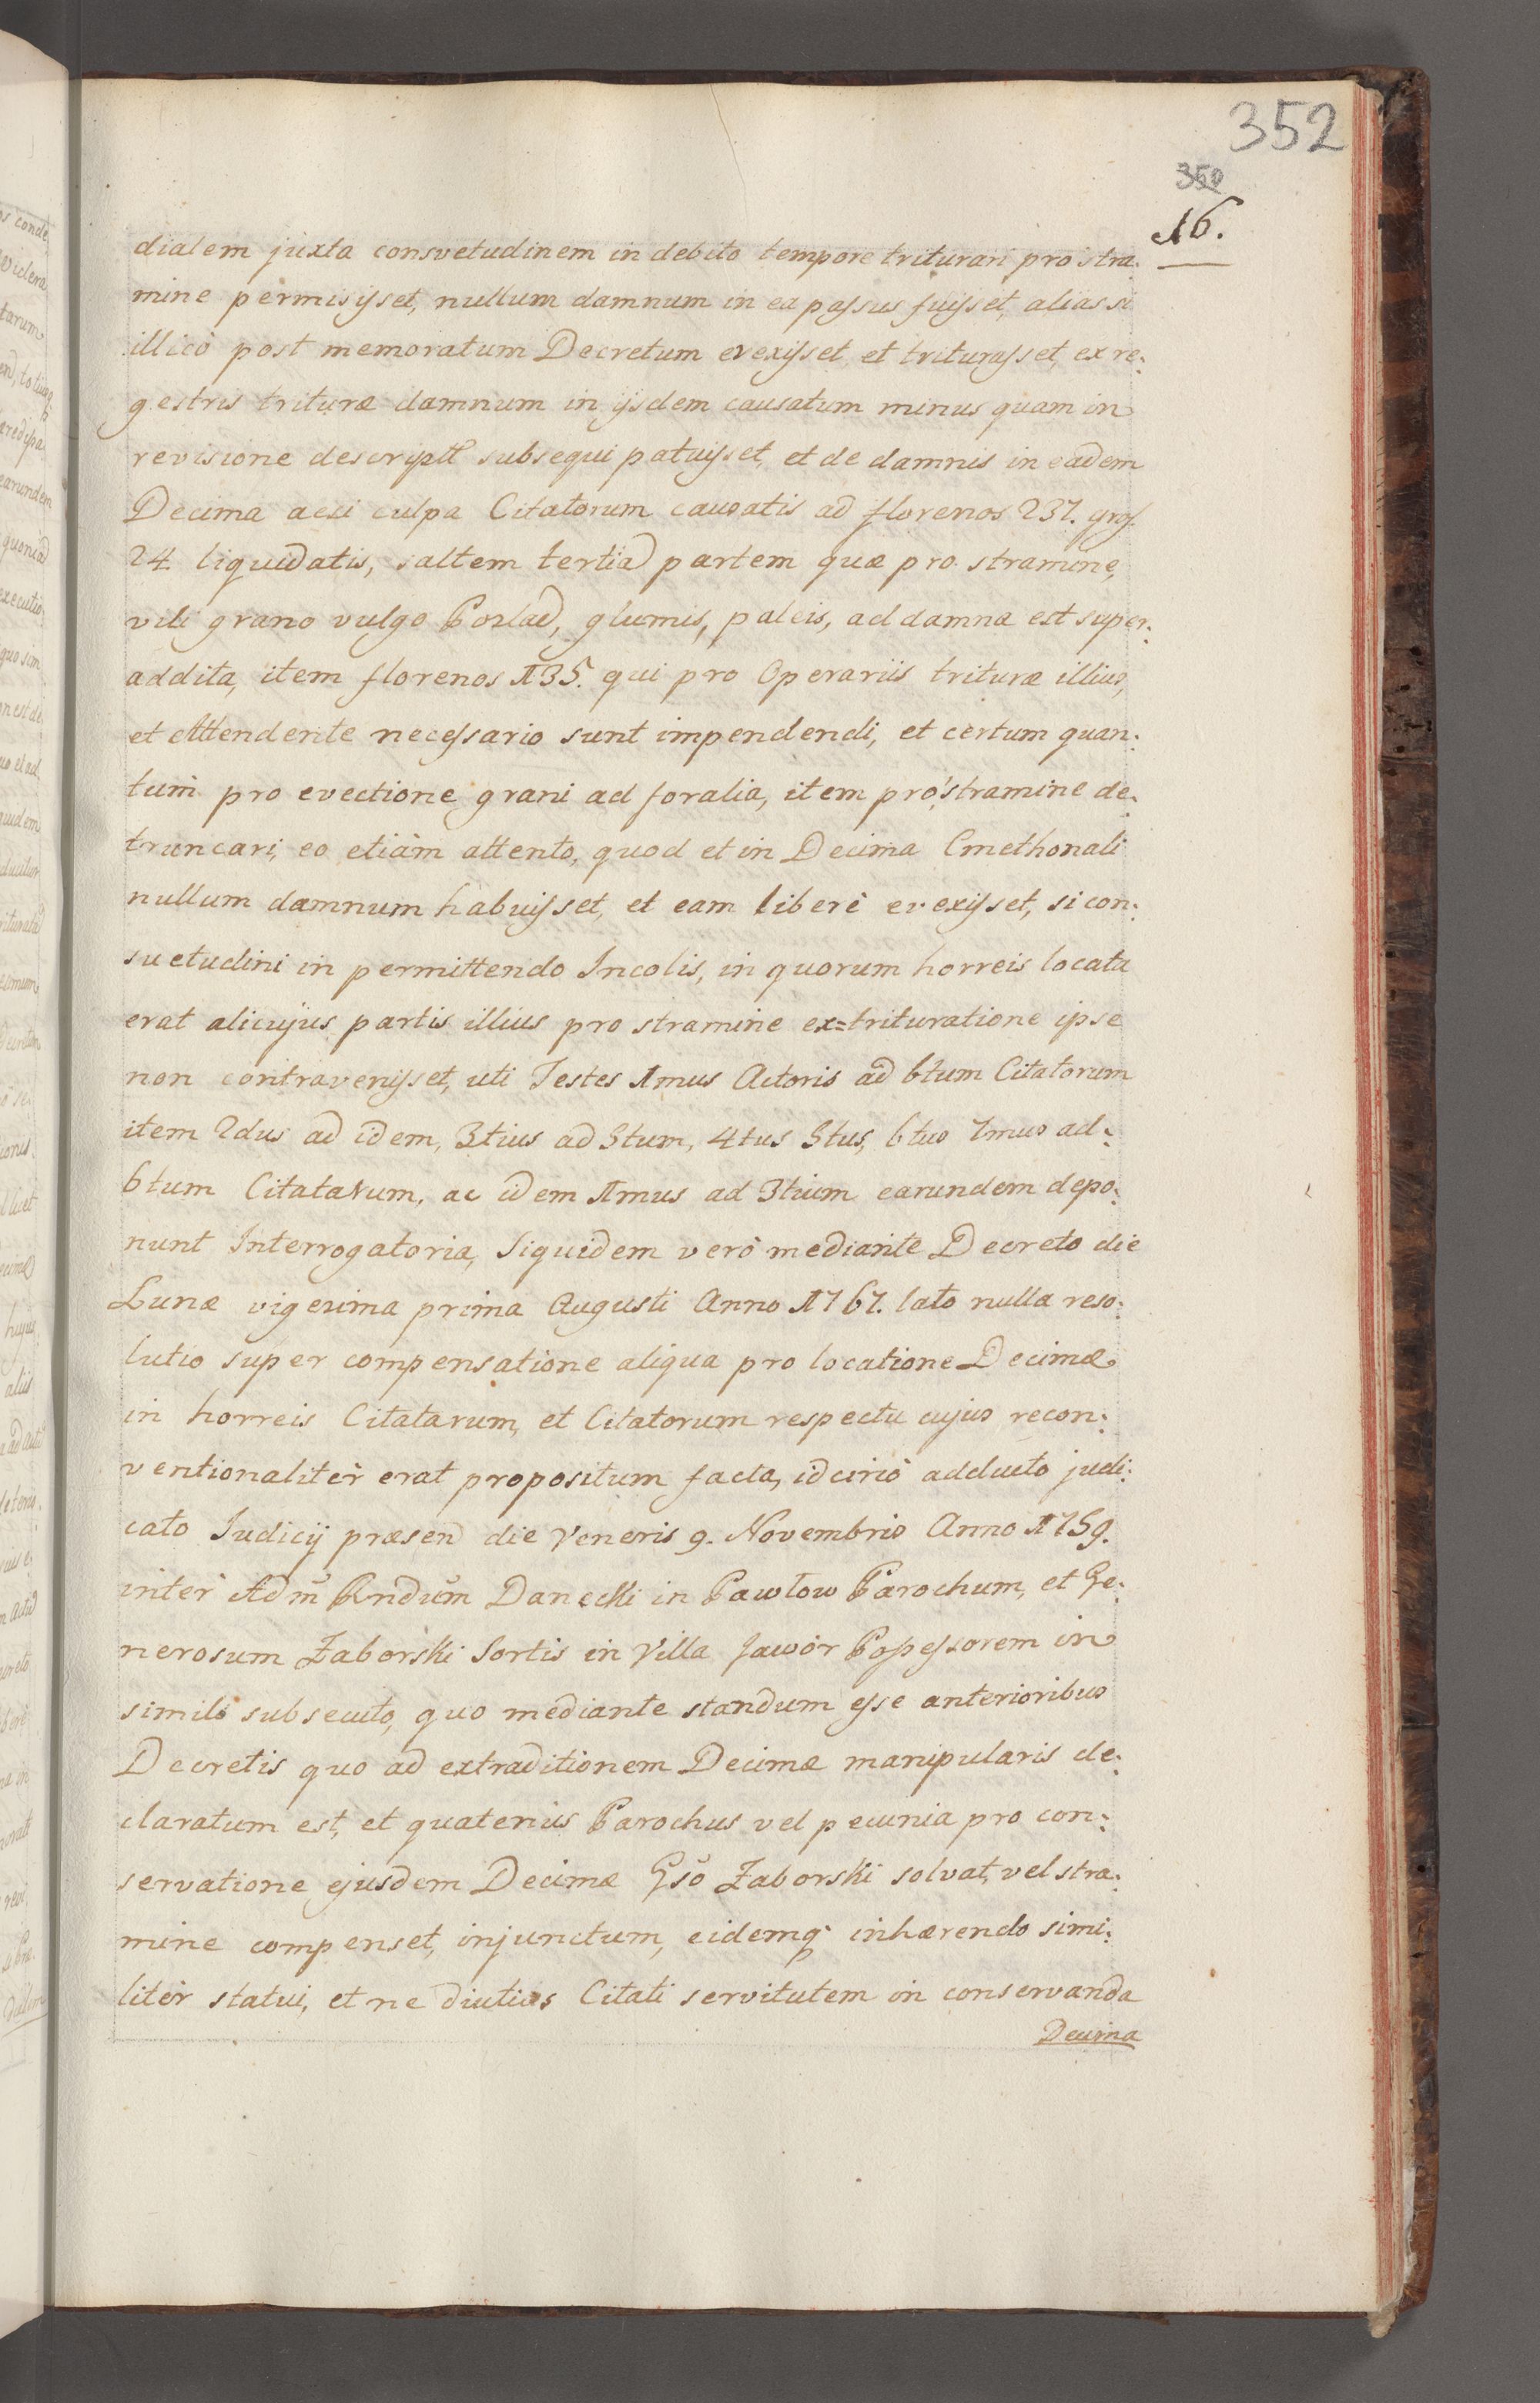 352
350
16.
dialem juxta consvetudinem in debito tempore triturari pro stra:
mine permisisset, nullum damnum in ea passus fuisset, alias si
illicò post memoratum Decretum evexisset et triturasset, ex re:
gestris trituræ damnum in ijsdem causatum minus quam in
revisione descriptt subsequi patuisset, et de damnis in eadem
Decima acsi culpa Citatorum causatis ad florenos 237. gros.
24 liquidatis, saltem tertiã partem quæ pro stramine,
vili grano vulgo Poslad, glumis, paleis, ad damna est super:
addita, item florenos 135. qui pro Operariis trituræ illius,
et Attendente necessario sunt impendendi, et certum quan:
tum pro evectione grani ad foralia, item pro stramine de:
truncari, eo etiam attento, quod et in Decima Cmethonali
nullum damnum habuisset, et eam liberè evexisset, si con:
suetudini in permittendo Incolis, in quorum horreis locata
erat alicujus partis illius pro stramine ex=trituratione ipse
non contravenisset, uti Testes 1mus Actoris ad 6tum Citatorum
item 2dus ad idem, 3tius ad 5tum, 4tus 5tus, 6tus 7mus ad:
6tum Citatarum, ac idem 1mus ad 3tium earundem depo:
nunt Interrogatoria, Siquidem verò mediante Decreto die
Lunæ vigesima prima Augusti Anno 1767. lato nulla reso:
lutio super compensatione aliqua pro locatione Decimæ
in horreis Citatarum, et Citatorum respectu cujus recon:
ventionaliter erat propositum facta, idcircò adducto judi:
cato Judicij præsen die Veneris 9. Novembris Anno 1759.
inter Adm̃ Rndũm Danecki in Pawłow Parochum, et Ge:
nerosum Zaborski Sortis in Villa Jawor Possessorem in
simili subsecuto, quo mediante standum esse anterioribus
Decretis quo ad extraditionem Decimæ manipularis de:
claratum est, et quatenus Parochus vel pecunia pro con:
servatione ejusdem Decimæ Gsõ Zaborski solvat, vel stra:
mine compenset, injunctum, eidemq inhærendo simi:
liter statui, et ne diutius Citati servitutem in conservanda
Decima